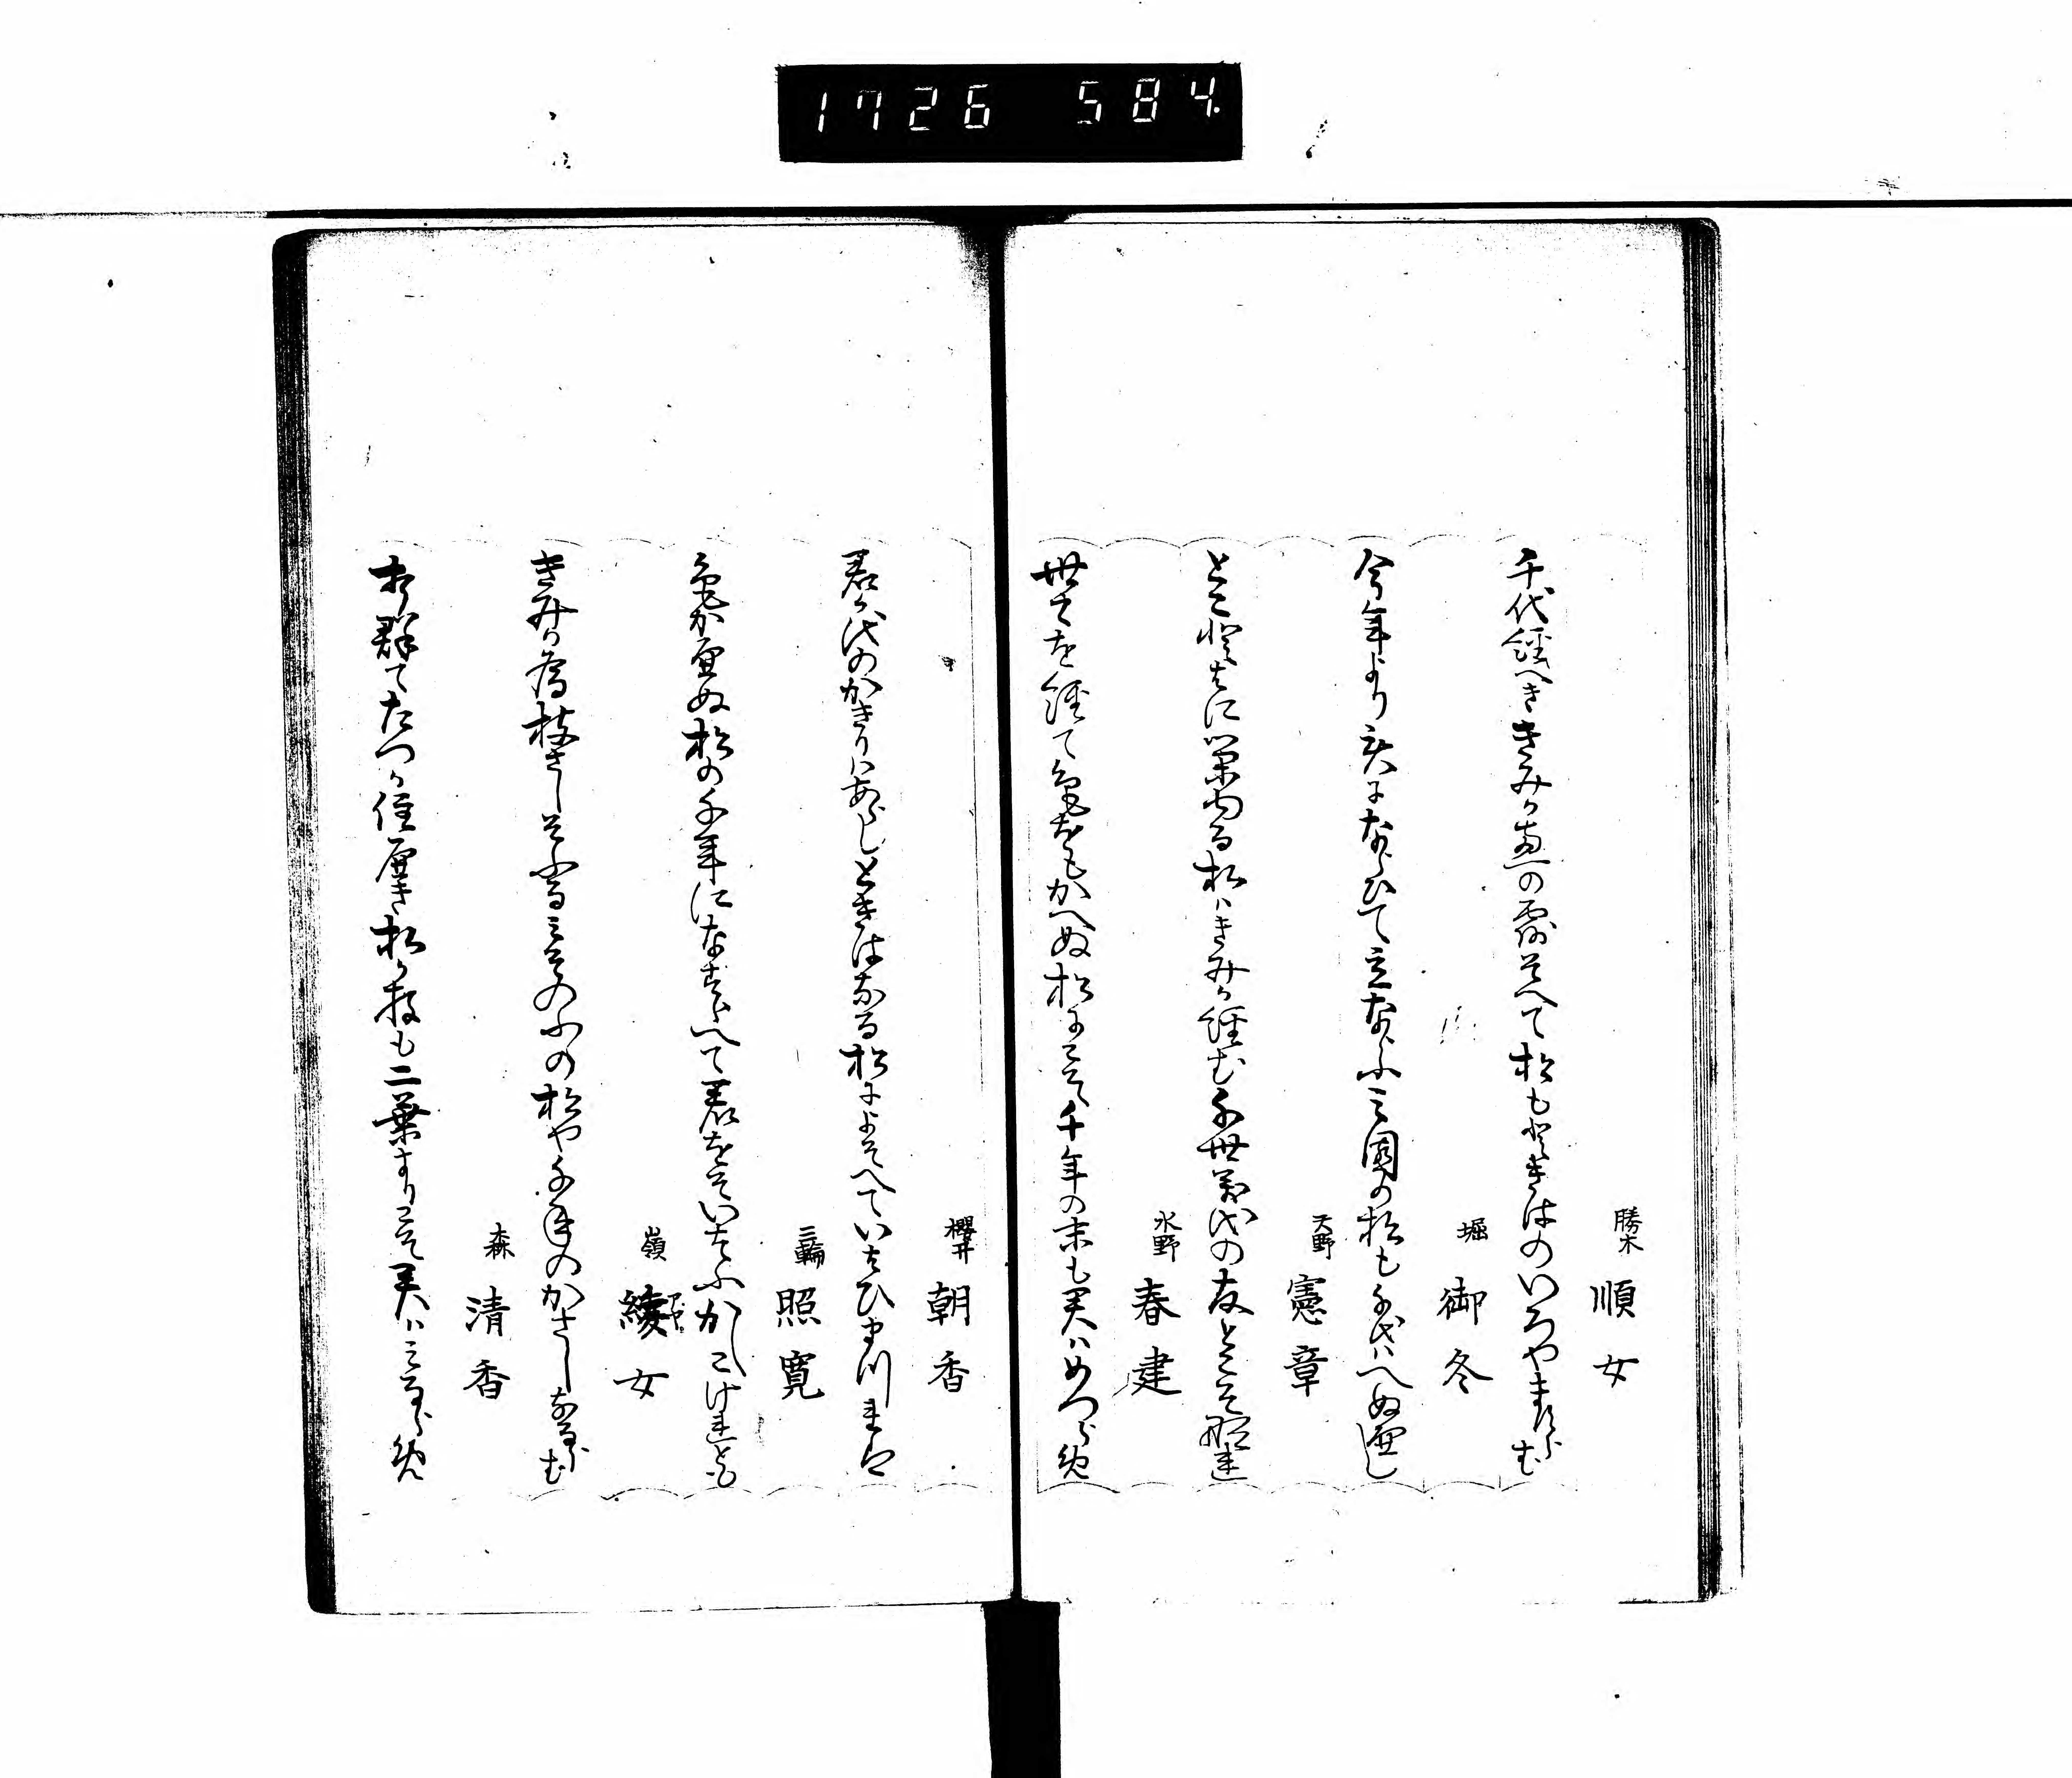 1726 584
勝木 順女
千代経へききみか恵の露そへて松もときはのいろやまさらむ
堀 御冬
今年より君になならひて立ならふみ園の松も千代はへぬへし
天野 憲章
とことはに栄ゆる松はきみか経む千世万代の友とこそ那連
水野 春建
世々を経て色をもかへぬ松にこそ千年の末も君はめつらめ
櫻井 朝香
君か代のかきりはあらしときはなる松によそへていはひまつれは
三輪 照寛
色かへぬ松の千年になすらへて君をそいはふかしこけれとも
嶺 綾女
きみか為枝さしそふるみそのふの松や千年のかさしなるらむ
森 清香
むれ群てたつか住へき松か枝も二葉よりこそ君はみるらめ